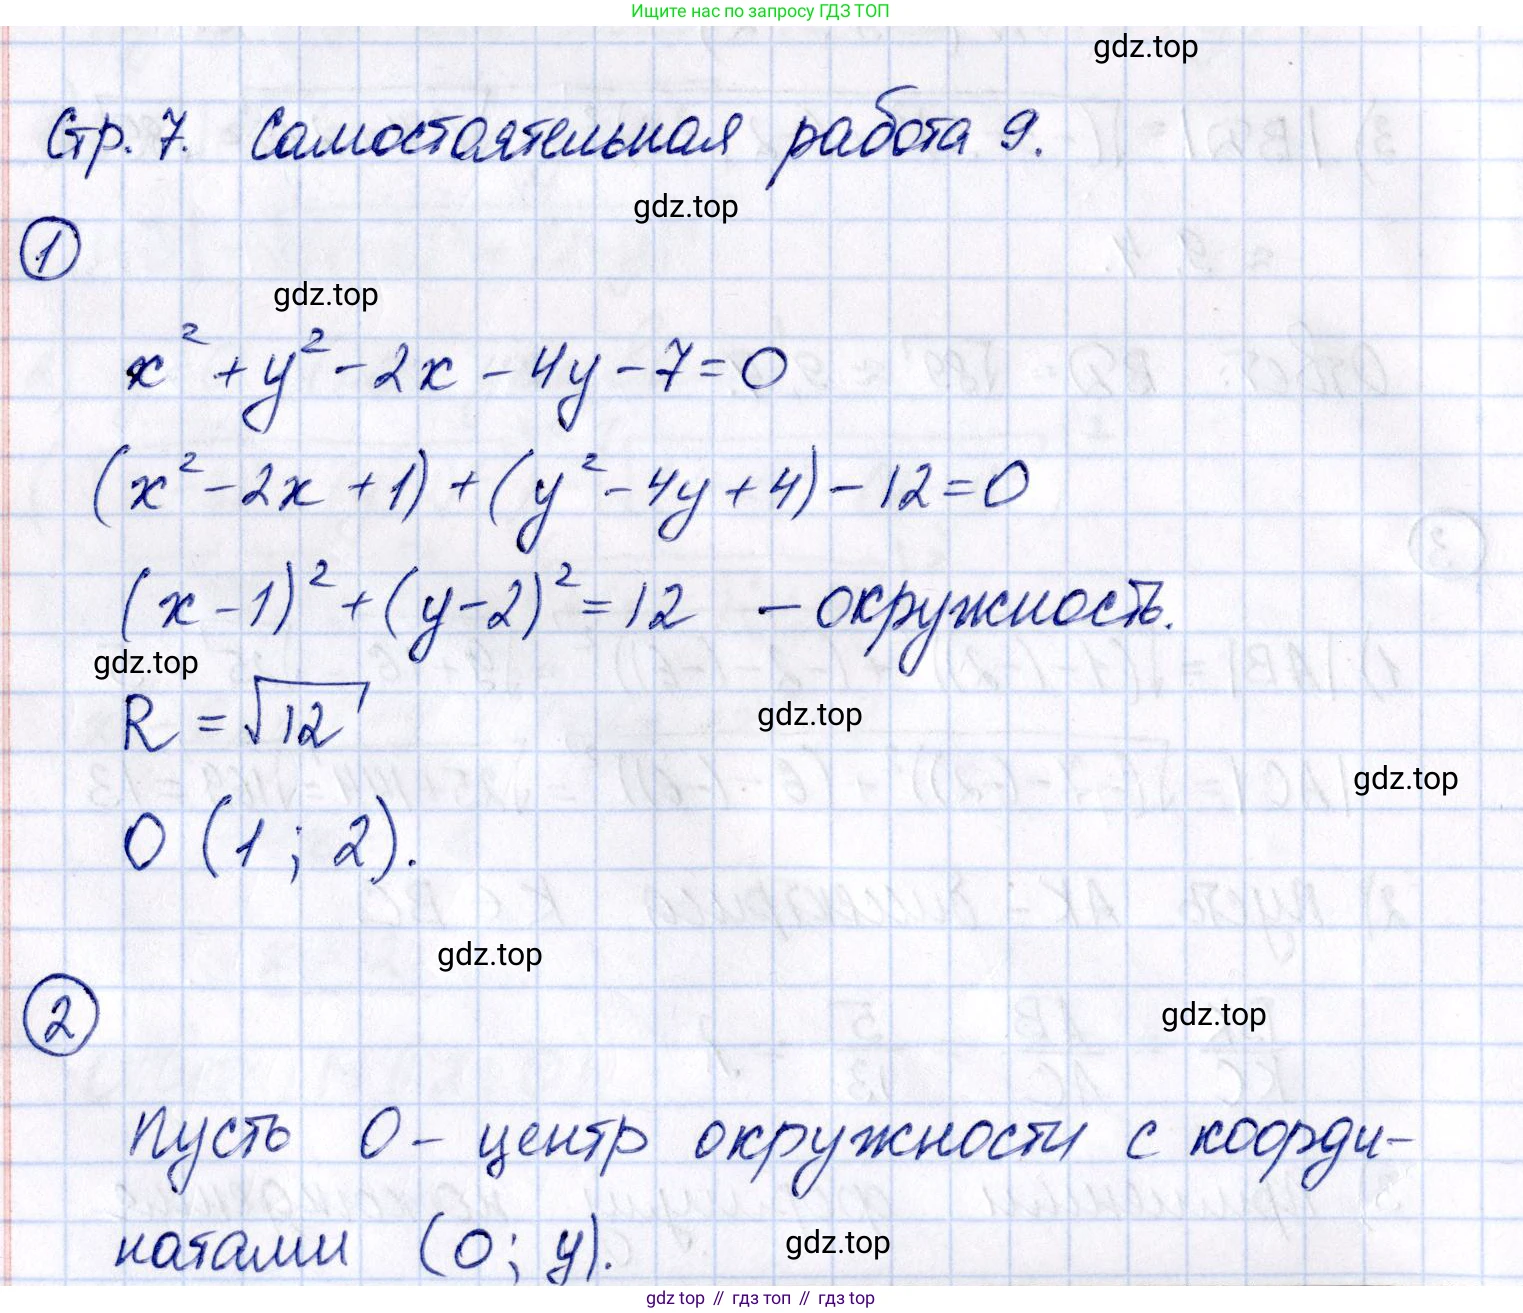 Ищите нас по запросу ГДЗ ТОП
gdz.top
Стр. 7. Самостоятельная работа 9.
gdz.top
1
gdz.top
x² + y² - 2x - 4y - 7 = 0
(x² - 2x + 1) + (y² - 4y + 4) - 12 = 0
(x - 1)² + (y - 2)² = 12 - окружность.
gdz.top
R = √12
gdz.top
gdz.top
O (1 ; 2).
gdz.top
2
gdz.top
Пусть O - центр окружности с коорди-
натами (0 ; y).
gdz.top
gdz top // гдз топ // гдз top